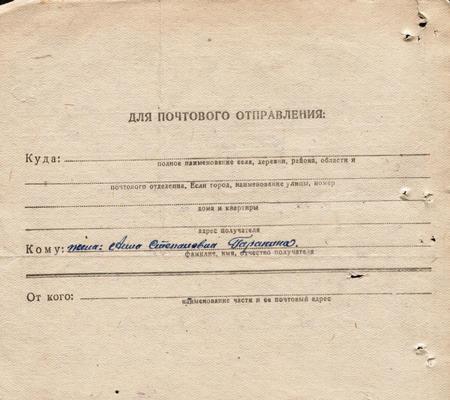 ДЛЯ ПОЧТОВОГО ОТПРАВЛЕНИЯ:
Куда:
полное наименование села, деревни, района, области и
почтового отделения. Если город, наименование улицы, номер
дома и квартиры
адрес получателя
Кому: жена: Анна Степановна Баранина.
фамилия, имя, отчество получателя
От кого:
наименование части и ее почтовый адрес